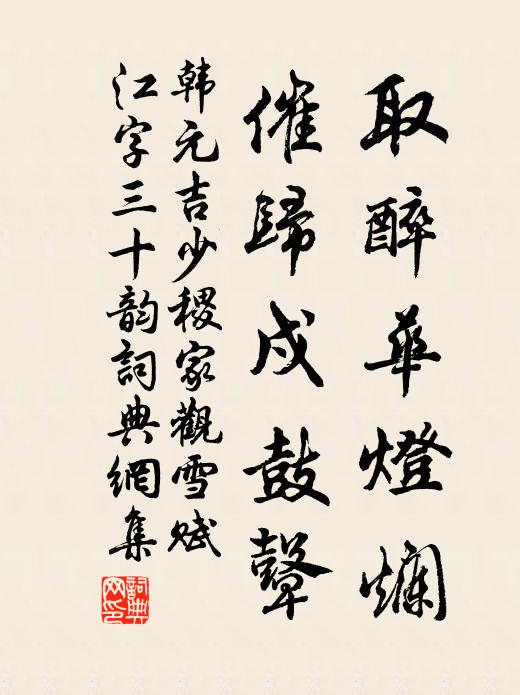 取醉華燈爛
催歸戍鼓聲
韩元吉少稷家觀雪赋
江字三十韵詞典網集
詞典
网印